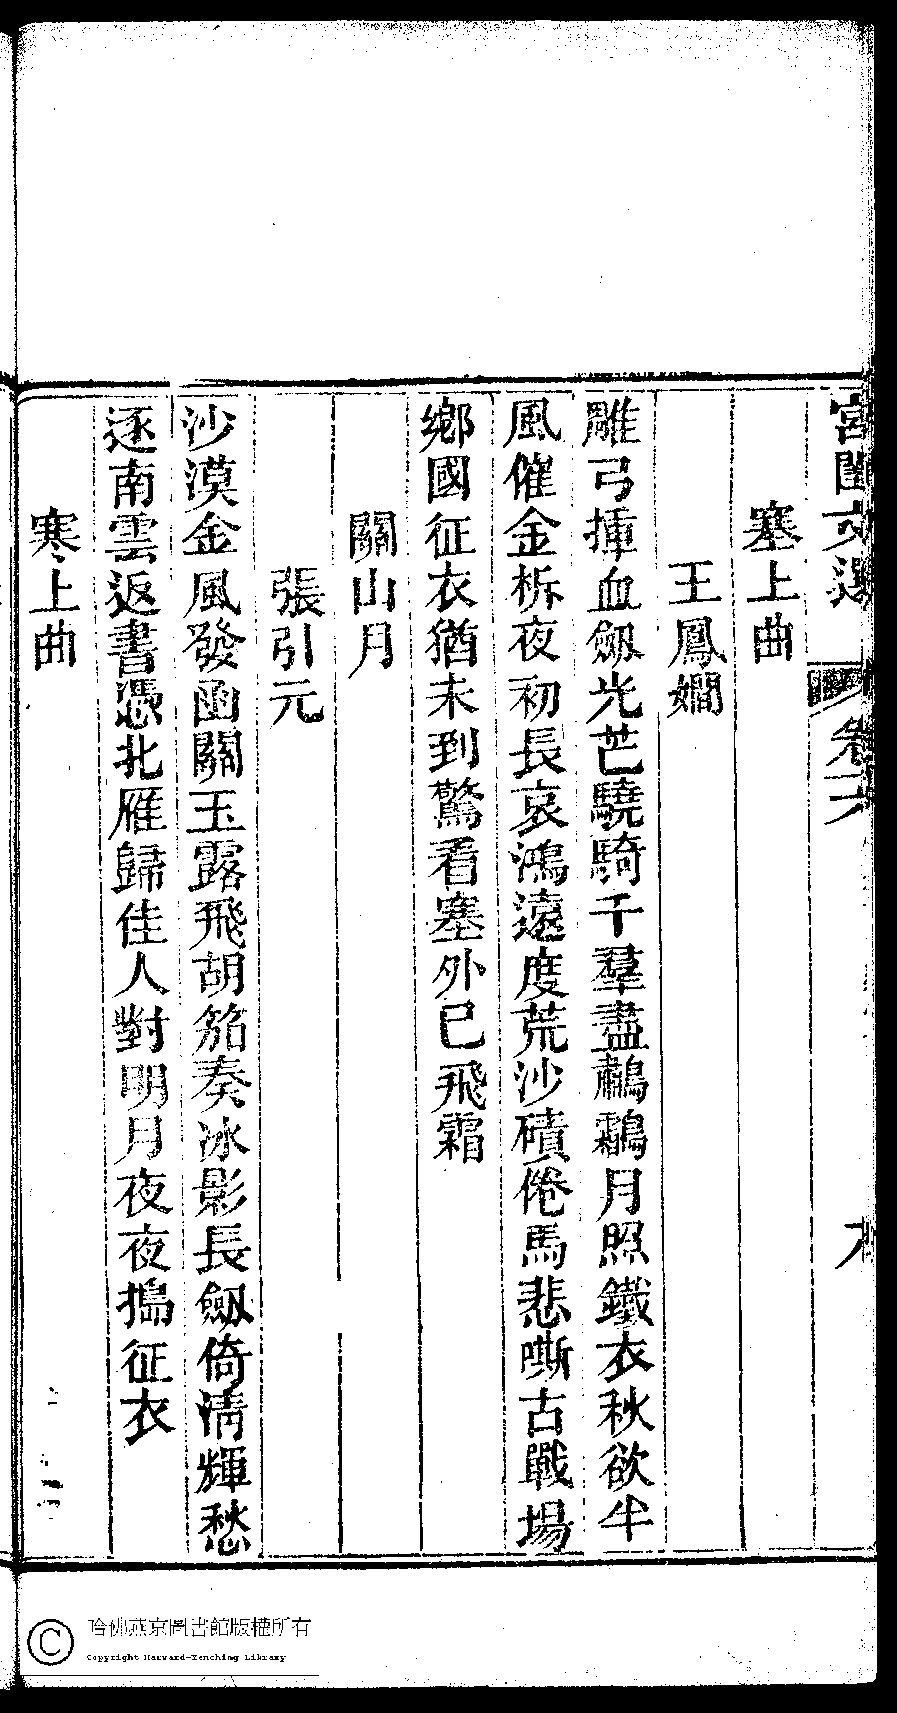 宮閨文選 卷六 六
塞上曲
王鳳嫺
雕弓揮血劔光芒驍騎千羣盡鷫鸘月照鐵衣秋欲半
風催金柝夜初長哀鴻遠度荒沙磧倦馬悲嘶古戰場
鄉國征衣猶未到驚看塞外已飛霜
關山月
張引元
沙漠金風發函關玉露飛胡笳奏冰影長劔倚清輝愁
逐南雲返書憑北雁歸佳人對明月夜夜搗征衣
寒上曲
哈佛燕京圖書館版權所有
Copyright Harvard-Yenching Library